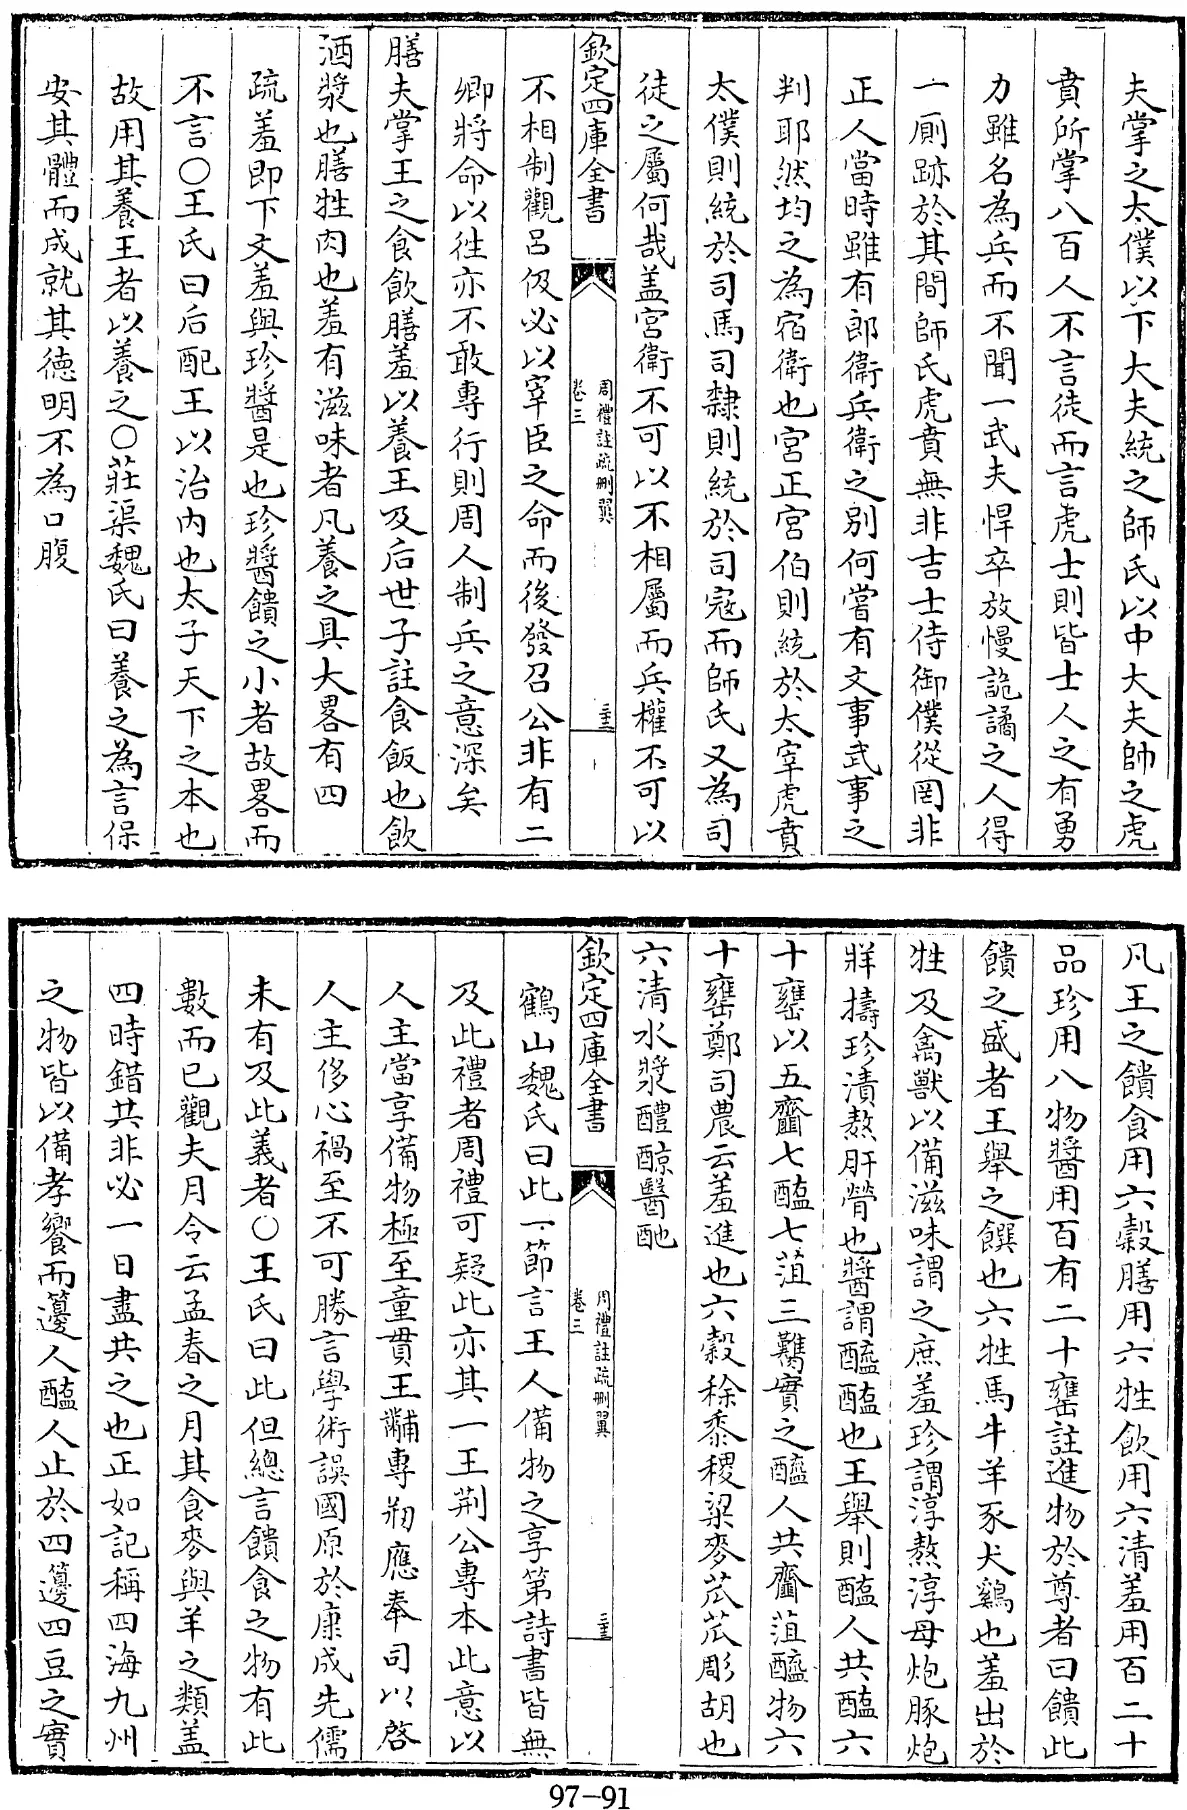 夫掌之太僕以下大夫統之師氏以中大夫帥之虎
賁所掌八百人不言徒而言虎士則皆士人之有勇
力雖名為兵而不聞一武夫悍卒放慢詭譎之人得
一厠跡於其間師氏虎賁無非吉士侍御僕從罔非
正人當時雖有郎衛兵衛之别何嘗有文事武事之
判耶然均之為宿衛也宮正宮伯則統於太宰虎賁
太僕則統於司馬司隸則統於司寇而師氏又為司
徒之屬何哉盖宮衛不可以不相屬而兵權不可以
欽定四庫全書
周禮註疏刪翼
卷三
不相制觀呂伋必以宰臣之命而後發召公非有二
卿將命以徃亦不敢專行則周人制兵之意深矣
膳夫掌王之食飲膳羞以養王及后世子註食飯也飲
酒漿也膳牲肉也羞有滋味者凡養之具大畧有四
疏羞即下文羞與珍醬是也珍醬饋之小者故畧而
不言○王氏曰后配王以治内也太子天下之本也
故用其養王者以養之○莊渠魏氏曰養之為言保
安其體而成就其德明不為口腹
凡王之饋食用六穀膳用六牲飲用六清羞用百二十
品珍用八物醬用百有二十罋註進物於尊者曰饋此
饋之盛者王舉之饌也六牲馬牛羊豕犬鷄也羞出於
牲及禽獸以備滋味謂之庶羞珍謂淳熬淳母炮豚炮
牂擣珍漬熬肝膋也醬謂醯醢也王舉則醢人共醢六
十罋以五齏七醢七菹三臡實之醯人共齏菹醯物六
十罋鄭司農云羞進也六穀稌黍稷粱麥苽苽彫胡也
六清水漿醴䣼醫酏
欽定四庫全書
周禮註疏刪翼
卷三
鶴山魏氏曰此一節言王人備物之享第詩書皆無
及此禮者周禮可疑此亦其一王荆公專本此意以
人主當享備物極至童貫王黼專刱應奉司以啓
人主侈心禍至不可勝言學術誤國原於康成先儒
未有及此義者○王氏曰此但總言饋食之物有此
數而已觀夫月令云孟春之月其食麥與羊之類盖
四時錯共非必一日盡共之也正如記稱四海九州
之物皆以備孝饗而籩人醢人止於四籩四豆之實
97-91